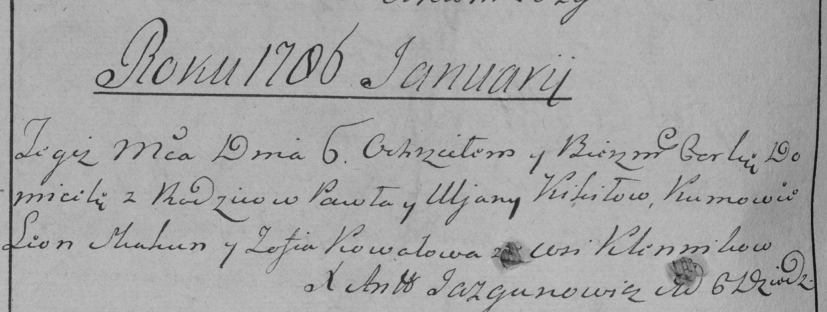 Roku 1786 Januarij
Tegiż Mca Dnia 6. Ochrzciłem y Bierzm Corkę Do
micelę z Rodzicow Pawła y Uljany Kikiłow, Kumowie
Leon Mahun y Zofia Kowalowa ze wsi Klennikow
X Antt Jazgunowicz